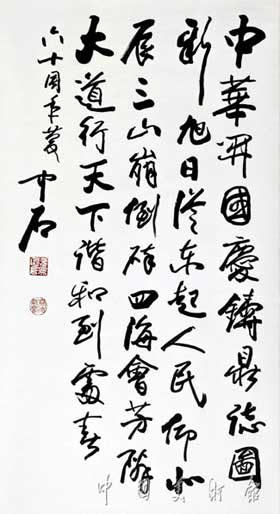 中華開國慶鑄鼎誌圖
新旭日從東起人民仰北
辰三山崩倒碎四海會芳鄰
大道行天下諧和到處春
六十周年慶
中石
中國美術館